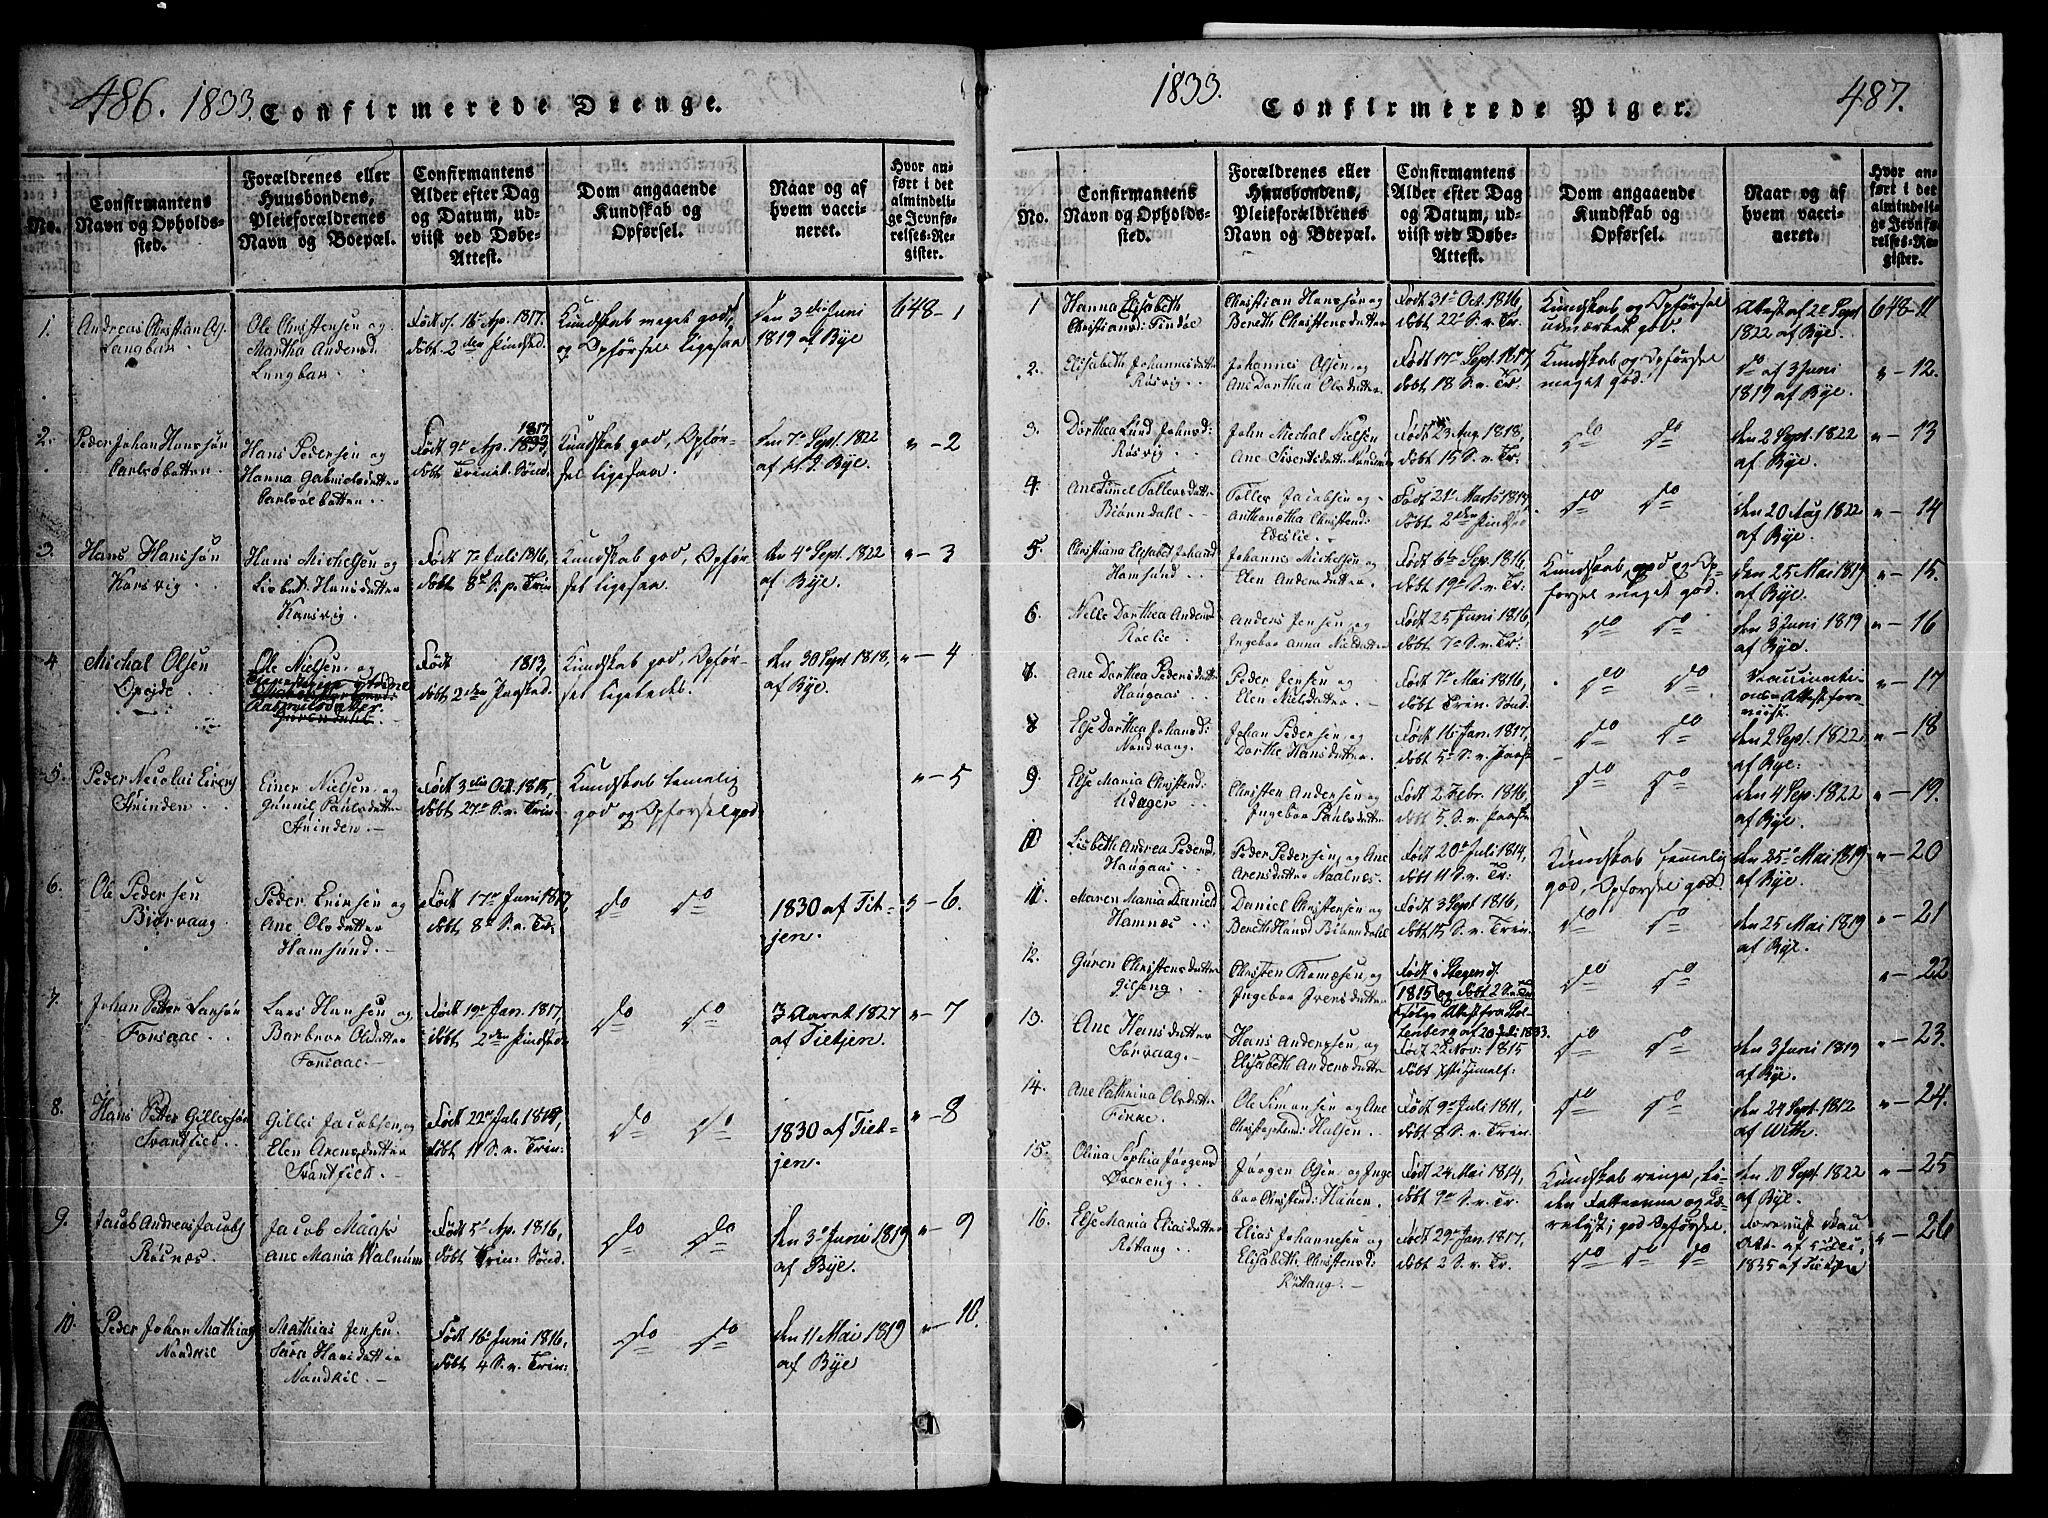 486. 1833. Confirmerede Drenge.
No.
Confirmantens
Navn og Opholds-
sted.
Forældrenes eller
Huusbondens,
Pleieforældrenes
Navn og Boepæl.
Confirmantens
Alder efter Dag
og Datum, ud-
viist ved Døbe-
Attest.
Dom angaaende
Kundskab og
Opførsel.
Naar og af
hvem vacci-
neret.
Hvor an-
ført i det
almindelige
Jevnfø-
relses-Re-
gister.
1.
Andreas Christian
Langbak
Ole Christensen og
Martha Andersd
Langbak
Født d. 16 Ap. 1817.
døbt 2den Pindsed.
Kundskab meget god,
og Opførsel ligesaa
Den 3die Juni
1819 af Bye
648-1
2.
Peder Johan Hanssøn
Carlsøbatten
Hans Pedersen og
Hanna Gabrielsdatter
Carlsølbatten
1817
Født 9de Ap. 1833
døbt Trinit. Sønd.
Kundskab god, Opfør-
sel ligesaa.
den 7de Sept. 1822
af Bye.
" - 2
3.
Hans Hanssøn
Kansvig
Hans Michelsen og
Lisbet Hansdatter
Kansvig
Født 7de Juli 1816,
døbt 8de S. p. Trin
Kundskab god, Opfør-
sel ligesaa
den 4de Sept. 1822
af Bye.
" - 3
4
Michal Olsen
Opeide
Ole Nielsen og
Født 1813,
døbt 2den Pingsted.
Kundskab god, Opfør-
sel ligeledes.
den 30 Sept 1818,
af Bye.
" - 4
5.
Peder Nicolai Einers
Skinden
Einer Nielsen og
Gunnil Paulsdatter
Skinden.
Født 3die Oct. 1815,
døbt 27de S. v. Trin
Kundskab temelig
god og Opførsel god
" - 5
6.
Ole Pedersen
Biørvaag
Peder Ericsen og
Ane Olsdatter
Hamsund
Født 17de Juni 1817,
døbt 8de S. v. Tr.
do do
1830 af Tiet-
jen.
" - 6.
7.
Johan Petter Larssøn
Forsaae
Lars Hansen og
Barbroe Olsdatter
Forsaae
Født 19de Jan. 1817,
døbt 2den Pindsed.
do do
I Aaret 1827
af Tietjen.
" - 7
8.
Hans Petter Gillessøn
Svartlied
Gilles Jacobsen og
Elen Arensdatter
Svartlied
Født 22de Juli 1817,
døbt 11 S. v. Trin:
do do
1830 af Tiet-
jen.
" - 8
9.
Jacob Andreas Jacobs
Røsnes
Jacob Maass
Ane Maria Walnum
Født 5te Ap. 1816,
døbt Trin: Sønd.
do do
den 3de Juni 1819
af Bye.
" - 9
10.
Peder Johan Mathias
Nordkil
Mathias Jensen
Sara Hansdatter
Nordkil
Født 16de Juni 1816,
døbt 4 S. v. Trin:
do do
den 11 Mai 1819
af Bye
" - 10.
1833. Confirmerede Piger. 487.
No.
Confirmantens
Navn og Opholds-
sted.
Forældrenes eller
Huusbondens,
Pleieforældrenes
Navn og Boepæl.
Confirmantens
Alder efter Dag
og Datum, ud-
viist ved Døbe-
Attest.
Dom angaaende
Kundskab og
Opførsel.
Naar og af
hvem vacci-
neret.
Hvor an-
ført i det
almindeli-
ge Jevnfø-
relses-Re-
gister.
1
Hanna Elisabeth
Christiansd: Tindøe
Christian Hanssøn og
Bereth Christensdatter
Født 31te Oct. 1816
døbt 22de S. v. Tr.
Kundskab og Opførsel
udmærket god
Attest af 2 Sept
1822 af Bye.
648-11
2.
Elisabeth Johannesdatter
Røsvig
Johannes Olsen og
Ane Dorthea Olsdatter
Født 17de Sept. 1817,
døbt 18 S. v. Tr:
Kundskab og Opførsel
meget god.
do af 3 Juni
1819 af Bye.
" - 12.
3.
Dorthea Lund Johnsd:
Røsvig
John Michal Nielsen
Ane Sivertsdatter
Født 23 Aug. 1818,
døbt 15 S. v. Tr:
do do
den 2 Sept. 1822
af Bye.
" - 13
4
Ane Simel Tollersdatter
Biørndahl
Toller Jacobsen og
Christensd:
Født 21de Marts 1817,
døbt 2den Pindsed
do do
den 20 Aug 1822
af Bye.
" - 14
5.
Christiana Elisabet Johansd
Hamsund
Johannes Michelsen og
Elen Andersdatter
Født 6te Sep. 1816,
døbt 19de S. v. Tr:
Kundskab god og Op-
førsel meget god.
den 25 Mai 1819
af Bye.
" - 15.
6.
Nelle Dorthea Andersd
Andens Jensen og
Ingebor Anna Nielsdatter
Født 25 Juni 1816,
døbt 7de S. v. Tr:
do do
den 3 Juni 1819
af Bye.
" - 16
7.
Ane Dorthea Pedersdatter
Haugaas
Peder Jensen og
Elen Nielsdatter
Født 7de Mai 1816,
døbt Trin. Sønd.
do do
Vaccinati-
ons-Attest fore-
viist.
" - 17
8
Else Dorthea Johansd:
Nordvaag
Johan Pedersen og
Dorthe Hansdatter
Født 16 Jan. 1817,
døbt 5te S. v. Paaske
do do
den 2 Sept. 1822
af Bye.
" - 18
9.
Else Maria Christensd:
Christen Andersen og
Ingebor Paulsdatter
Født 2 Febr. 1816,
døbt 5. S. v. Paaske
do do
den 4 Sep. 1822
af Bye.
" - 19.
10
Lisbeth Andrea Pedersd.
Haugaas
Peder Pedersen og Ane
Arensdatter Naalnes.
Født 20de Juli 1814,
døbt 11 S. v. Tr:
Kundskab temelig
god, Opførsel god.
den 25de Mai 1819
af Bye.
" - 20
11.
Maren Maria Danield
Hamnæs
Daniel Christensen og
Bereth Hansd Biørndahl
Født 3 Sept 1816,
døbt 15 S. v. Trin:
do do
den 25 Mai 1819
af Bye.
" - 21
12.
Guren Christensdatter
Gilseng
Christen Thomæsen og
Ingebor Iversdatter
Født i Stegen d.
1815 og døbt 2 S.
følge Attest fra Hol-
lenberg af 20 Juli 1833.
do do
" - 22
13.
Ane Hansdatter
Sørvaag
Hans Andersen og
Elisabeth Andersdatter
Født 22 Nov: 1815
do do
den 3 Juni 1819
af Bye.
" - 23.
14.
Ane Cathrina Olsdatter
Finke
Ole Simonsen og Ane
Christophersd: Halsen
Født 9de Juli 1811,
døbt 8 S. v. Trin:
do do
den 24 Sept. 1812
af With.
" - 24.
15.
Olina Sophia Jørgensd
Øvereng
Jørgen Olsen og Inge-
bor Christensd: Hunen
Født 24 Mai 1814,
døbt 7de S. v. Tr.
Kundskab ringe,
god Opførsel
den 10 Sept. 1822
af Bye
" - 25
16.
Else Maria Eliasdatter
Røttang
Elias Johannesen og
Elisabeth Christensd:
Røttang
Født 29de Jan. 1817,
døbt 2 S. v. Tr.
do do do
1835 af Tietjen
" - 26